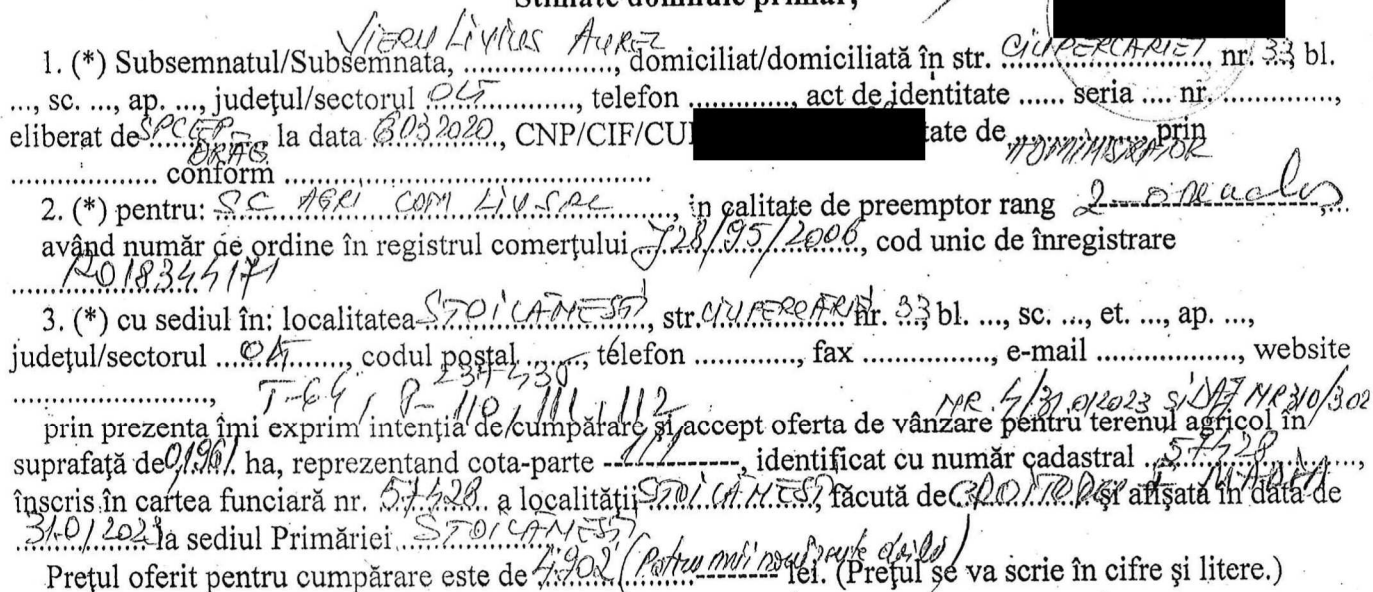 Stimate domnule primar,
VIERU LIVIUS AUREL
1. (*) Subsemnatul/Subsemnata, ................, domiciliat/domiciliată în str. CIUPERCARIEI nr. 33 bl.
..., sc. ..., ap. ..., judeţul/sectorul OLT..............., telefon ............, act de identitate ...... seria .... nr. .............,
eliberat de SPCLEP DRAG. la data 6.03.2020, CNP/CIF/CUI tate de ADMINISTRATOR, prin
................. conform ..........................................
2. (*) pentru: SC AGRI COM LIV SRL, in calitate de preemptor rang 2
având număr de ordine în registrul comerţului J28/95/2006, cod unic de înregistrare
RO18344171
3. (*) cu sediul în: localitatea STOICANESTI, str. CIUPERCARIEI nr. 33 bl. ..., sc. ..., et. ..., ap. ...,
judeţul/sectorul OLT, codul poştal 237430, telefon ............, fax ..............., e-mail ................., website
......................., T-64, P-110, 111, 112 NR. 4/31.01.2023 si DAJ NR 310/3.02
prin prezenta îmi exprim intenţia de cumpărare şi accept oferta de vânzare pentru terenul agricol în
suprafaţă de 0,1961 ha, reprezentand cota-parte 1/1, identificat cu număr cadastral 57428,
înscris în cartea funciară nr. 57428 a localităţii STOICANESTI, făcută de şi afişată în data de
31.01.2023 la sediul Primăriei STOICANESTI
Preţul oferit pentru cumpărare este de 4.902 (Patru mii nouă sute doi lei) lei. (Preţul se va scrie în cifre şi litere.)